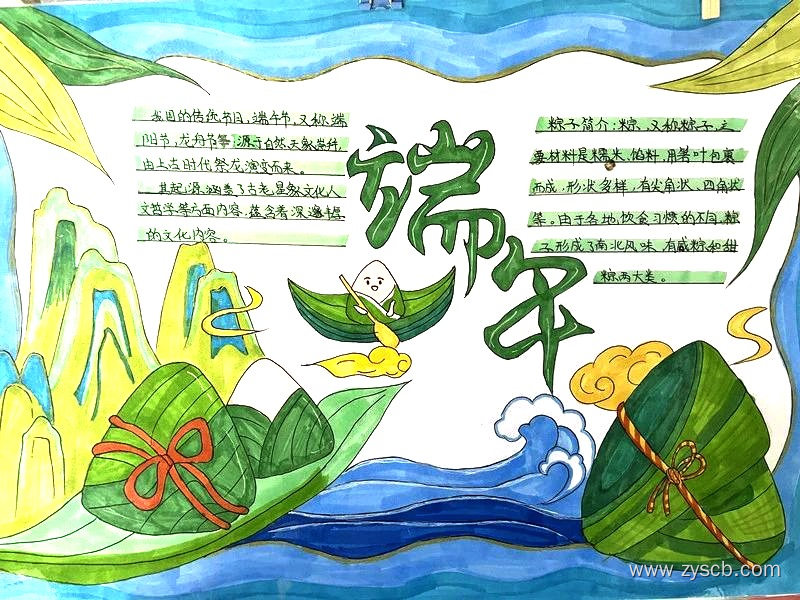 我国的传统节日,端午节,又称端
阳节,龙舟节等,源于自然天象崇拜,
由上古时代祭龙演变而来。
其起源涵盖了古老星象文化人
文哲学等方面内容,蕴含着深邃丰厚
的文化内容。
端午
粽子简介:粽,又称粽子,主
要材料是糯米、馅料,用箬叶包裹
而成,形状多样,有尖角状、四角状
等。由于各地饮食习惯的不同,粽
子形成了南北风味,有咸粽和甜
粽两大类。
www.zyscb.com